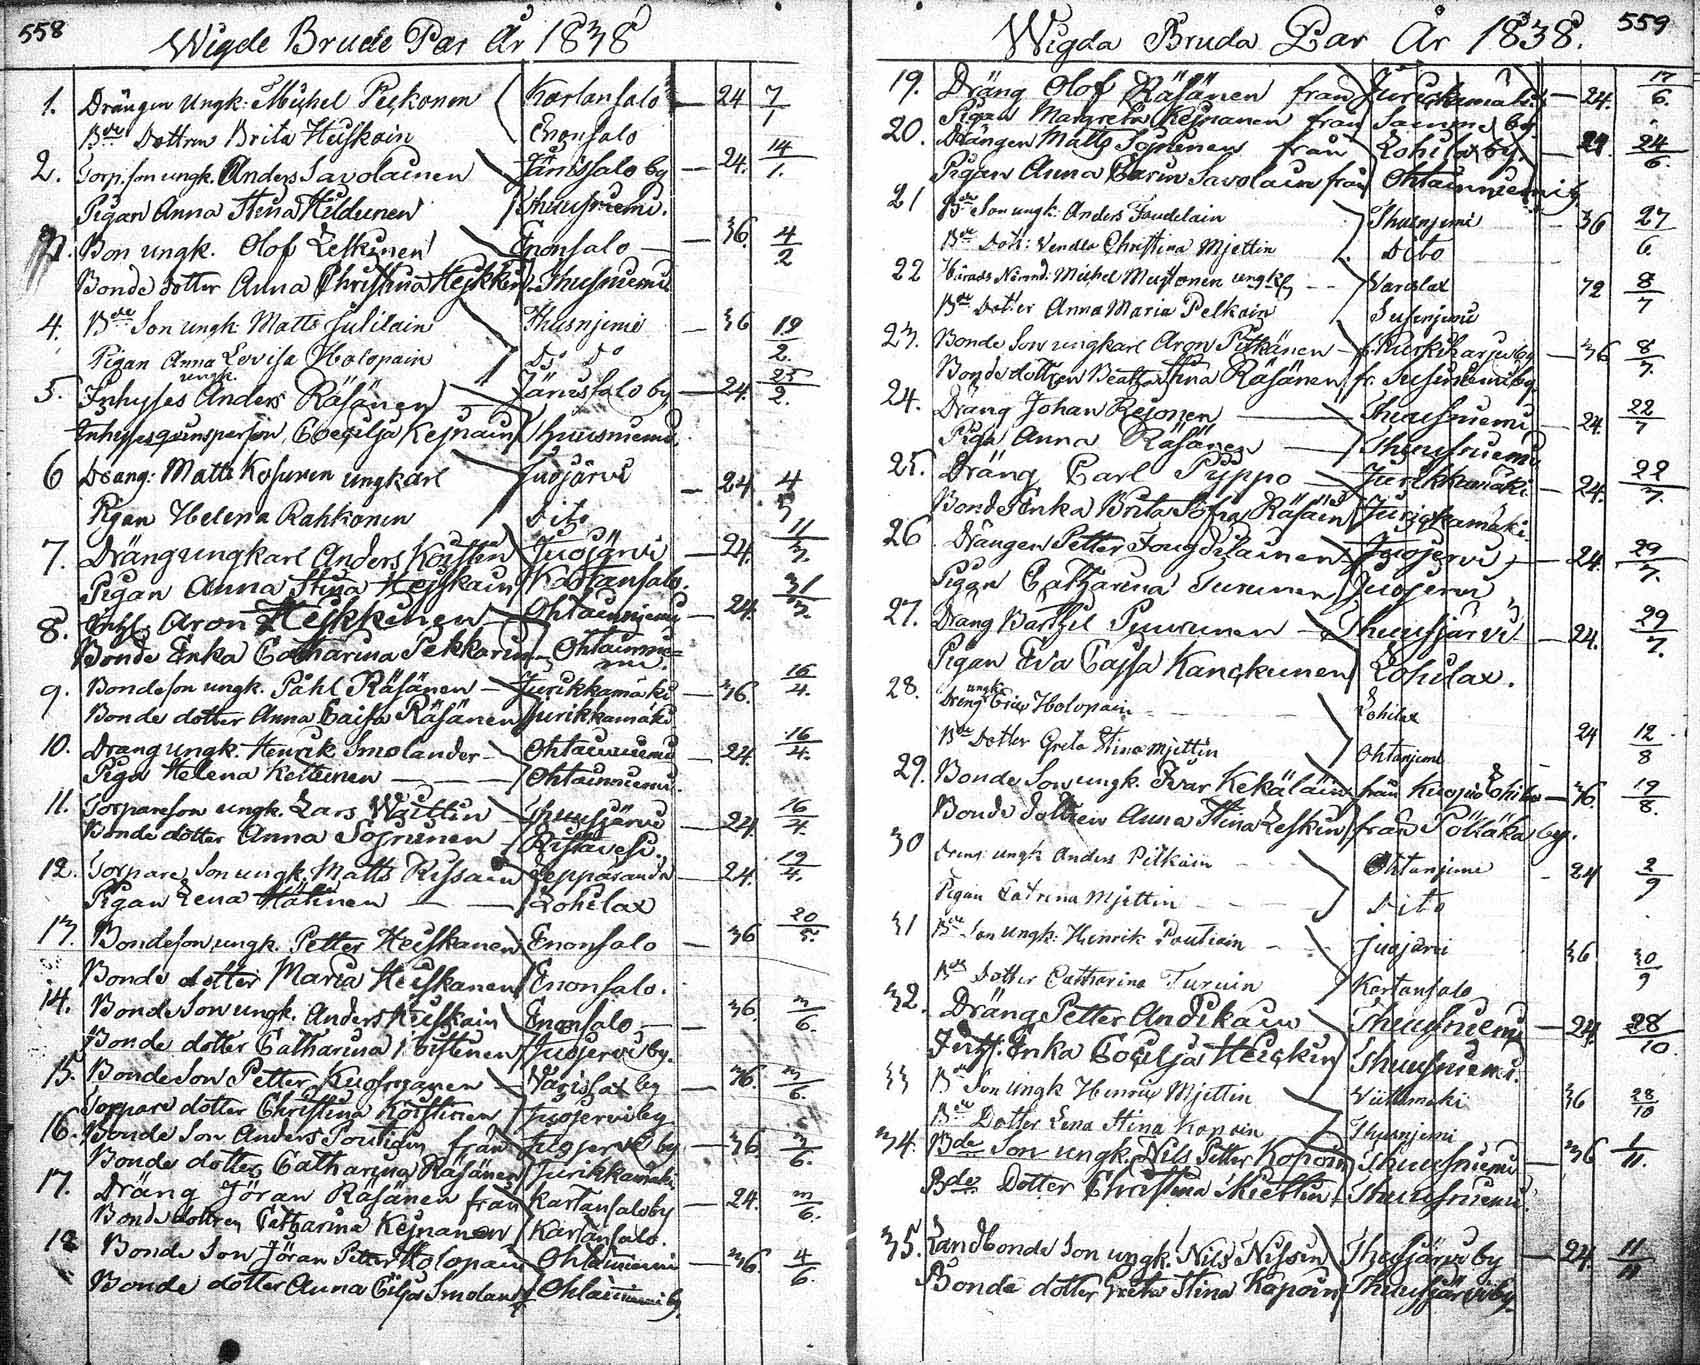 558
Wigde Brude Par År 1838
1. Drängen Ungk: Michel Peckonen Kartansalo — 24 7/1
Bde Dottren Brita Heiskain Enonsalo
2. Torp: son ungk. Anders Savolainen Jänissalo by — 24. 14/1.
Pigan Anna Stina Hildunen Thuusniemi.
3. Bon ungk. Olof Leskinen Enonsalo — 36. 4/2
Bonde dotter Anna Christina Thusniemi
4. Bde Son ungk: Matts Julilain Thusnjemi — 36 19/2.
Pigan Anna Lovisa Holopain Do Do
5. Inhyses ungk. Anders Räsänen Jänissalo by — 24. 25/2.
Inhyses qvinsperson Coecilja Kejnain
6 Dräng: Matts Kosunen ungkarl Juojärvi — 24. 4/3
Pigan Helena Rahkonen Dito
7. Dräng ungkarl Anders Juojärvi — 24. 11/3.
Pigan Anna Stina Heiskain Kartansalo.
8. Inhs. Aron Heikkinen Ohtainnjemi — 24. 31/3.
Bonde Enka Catharina Pekkarin Ohtainniemi.
9. Bondeson ungk. Påhl Räsänen — Jurikkamäki — 36. 16/4.
Bonde dotter Anna Caisa Räsänen Jurikkamäki
10. Dräng ungk. Henrik Smolander — Ohtainniemi — 24. 16/4.
Piga Helena Kettunen — Ohtainniemi.
11. Torpareson ungk. Lars — 24. 16/4.
Bonde dotter Anna Sojninen Ristavesi.
12. Torpare Son ungk. Matts Rissain Lepparanda — 24. 19/4.
Pigan Lena Lohilax
13. Bondeson ungk. Petter Heiskanen Enonsalo — 36 20/5.
Bonde dotter Maria Heiskanen Enonsalo.
14. Bonde Son ungk. Anders Heiskain Enonsalo — 36. 3/6.
Bonde dotter Catharina Juojervi by.
15. Bonde Son Petter Varislax by — 36. 3/6.
Torpare dotter Christina Juojervi by
16. Bonde Son Anders Poutiain från Juojervi by — 36. 3/6.
Bonde dotter Catharina Räsänen Jurikkamäki
17. Dräng Jöran Räsänen från Kartansalo by — 24. 3/6.
Bonde dottren Catharina Kejnanen Kartansalo.
18 Bonde Son Jöran Petter Holopain Ohtainniemi — 36. 4/6.
Bonde dotter Anna Smoland Ohtainniemi by.
559
Wigda Bruda Par År 1838.
19. Dräng Olof Räsänen från — 24. 17/6.
Pigan Margreta Kejnanen från by
20. Drängen Matts Sojninen från Lohilax by. — 24 24/6.
Pigan Anna Carin Savolain från Ohtainniemi by
21 Bde Son ungk: Anders Foudelain Thusnjemi 36 27/6.
Bde Dott: Vendla Christina Mjettin Dito
22 Härads Nämnd: Michel Mustonen ungkl — Varislax 72 8/7
Bde Dotter Anna Maria Pelkoin Susinjemi
23. Bonde Son ungkarl Aron Pitkänen — by — 36 8/7.
Bonde dottren Beata Stina Räsänen fr. Susiniemi by.
24. Dräng Johan Reijonen — Thuusniemi — 24. 22/7
Piga Anna Räsänen — Thuusniemi
25. Dräng Carl Pyppo — Jurikkamäki — 24. 22/7.
Bonde Enka Brita Sofia Räsäin Jurickamäki.
26 Drängen Petter Fougdilainen Juojervi — 24. 29/7.
Pigan Catharina Turunen Juojervi
27. Dräng Barthil Puurunen — Thuusjärvi — 24. 29/7.
Pigan Eva Cajsa Kanckunen Lohilax.
28. Dreng ungk Holopain Lohilax 24 12/8
Bde Dotter Greta Stina Mjettin Ohtanjemi
29. Bonde Son ungk. Ivar Kekäläin från — 36. 19/8.
Bonde dottren Anna Stina Leskin från by.
30 Dreng ungk Anders Pitkäin Ohtanjemi 24 2/9
Pigan Catrina Mjettin Dito
31 Bde Son ungk: Henrik Poutiain Juojärvi 36 30/9
Bde Dotter Catharina Turuin Kartansalo
32. Dräng Petter Andikain Thuusniemi — 24. 28/10
Inhs. Enka Cecilja Heickin Thuusniemi.
33 Bde Son ungk Henrik Mjettin 36 28/10
Bde Dotter Lena Stina Kopoin Thusnjemi
34. Bde Son ungk. Nils Petter Kopoin Thuusniemi — 36 1/11.
Bdes Dotter Christina Miettin Thuusniemi.
35. Landbonde Son ungk. Nils Nissin Thusjärvi by — 24. 11/11
Bonde dotter Greta Stina Kopoin Thuusjärvi by.